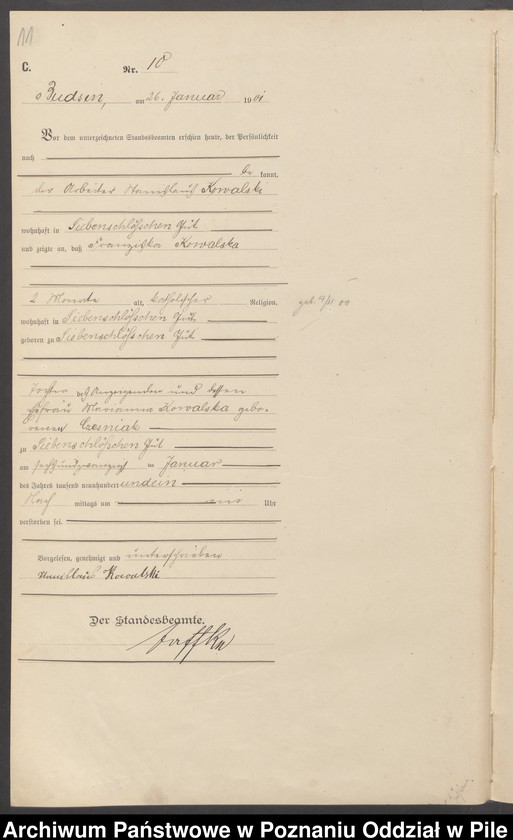 11
C.
Nr. 10
Budsin, am 26. Januar 1901
Vor dem unterzeichneten Standesbeamten erschien heute, der Persönlichkeit
nach
be kannt,
der Arbeiter Stanislaus Kowalski
wohnhaft in Siebenschlößchen Gut
und zeigte an, daß Franziska Kowalska
2 Monate alt, katholischer Religion,
geb.
wohnhaft in Siebenschlößchen Gut
geboren zu Siebenschlößchen Gut
Tochter des Anzeigenden und dessen
Ehefrau Marianna Kowalska gebo-
renen Czesniak
zu Siebenschlößchen Gut
am sechsundzwanzigsten Januar
des Jahres tausend neunhundert und ein
Nach mittags um Uhr
verstorben sei.
Vorgelesen, genehmigt und unterschrieben
Stanislaus Kowalski
Der Standesbeamte.
Archiwum Państwowe w Poznaniu Oddział w Pile